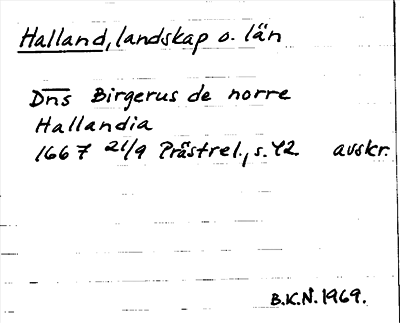 Halland, landskap o. län
Dns Birgerus de norre
Hallandia
1667 21/9 Prästrel., s. 42 avskr.
B.K.N. 1969.